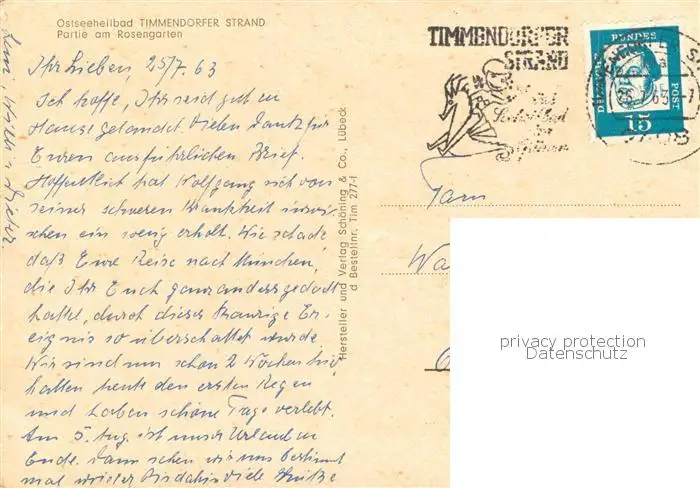 Ostseeheilbad TIMMENDORFER STRAND
Partie am Rosengarten
Ihr Lieben, 25/7. 63
Ich hoffe, Ihr seid gut in
Hause gelandet. Vielen Dank für
Euren ausführlichen Brief.
Hoffentlich hat Wolfgang sich von
seiner schweren Krankheit inzwi-
schen ein wenig erholt. Wie schade,
daß Eure Reise nach München,
die Ihr Euch ganz anders gedacht
hattet, durch dieses traurige Er-
eignis so überschattet wurde.
Wir sind nun schon 2 Wochen hier
hatten heute den ersten Regen
und haben schöne Tage verlebt.
Am 5. Aug. ist unser Urlaub zu
Ende. Dann sehen wir uns bestimmt
mal wieder. Bis dahin viele Grüße
Hersteller und Verlag Schöning & Co., Lübeck
d Bestellnr. Tim 277-1
TIMMENDORFER
STRAND
DEUTSCHE
BUNDES
POST
15
Fam
privacy protection
Datenschutz